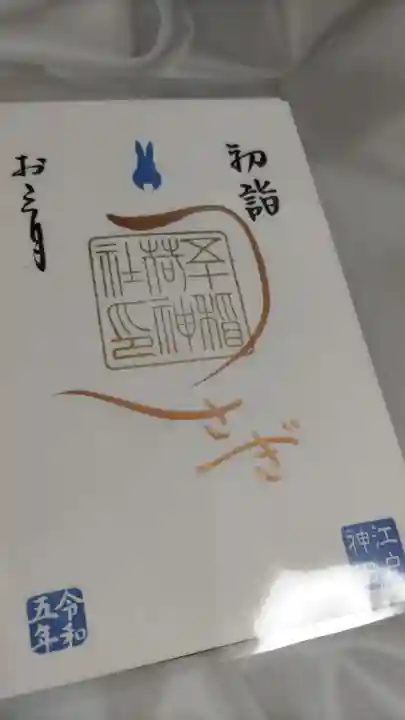 初詣
お正月
稲
荷神
社印
うさぎ
江戸
神
令和
五年